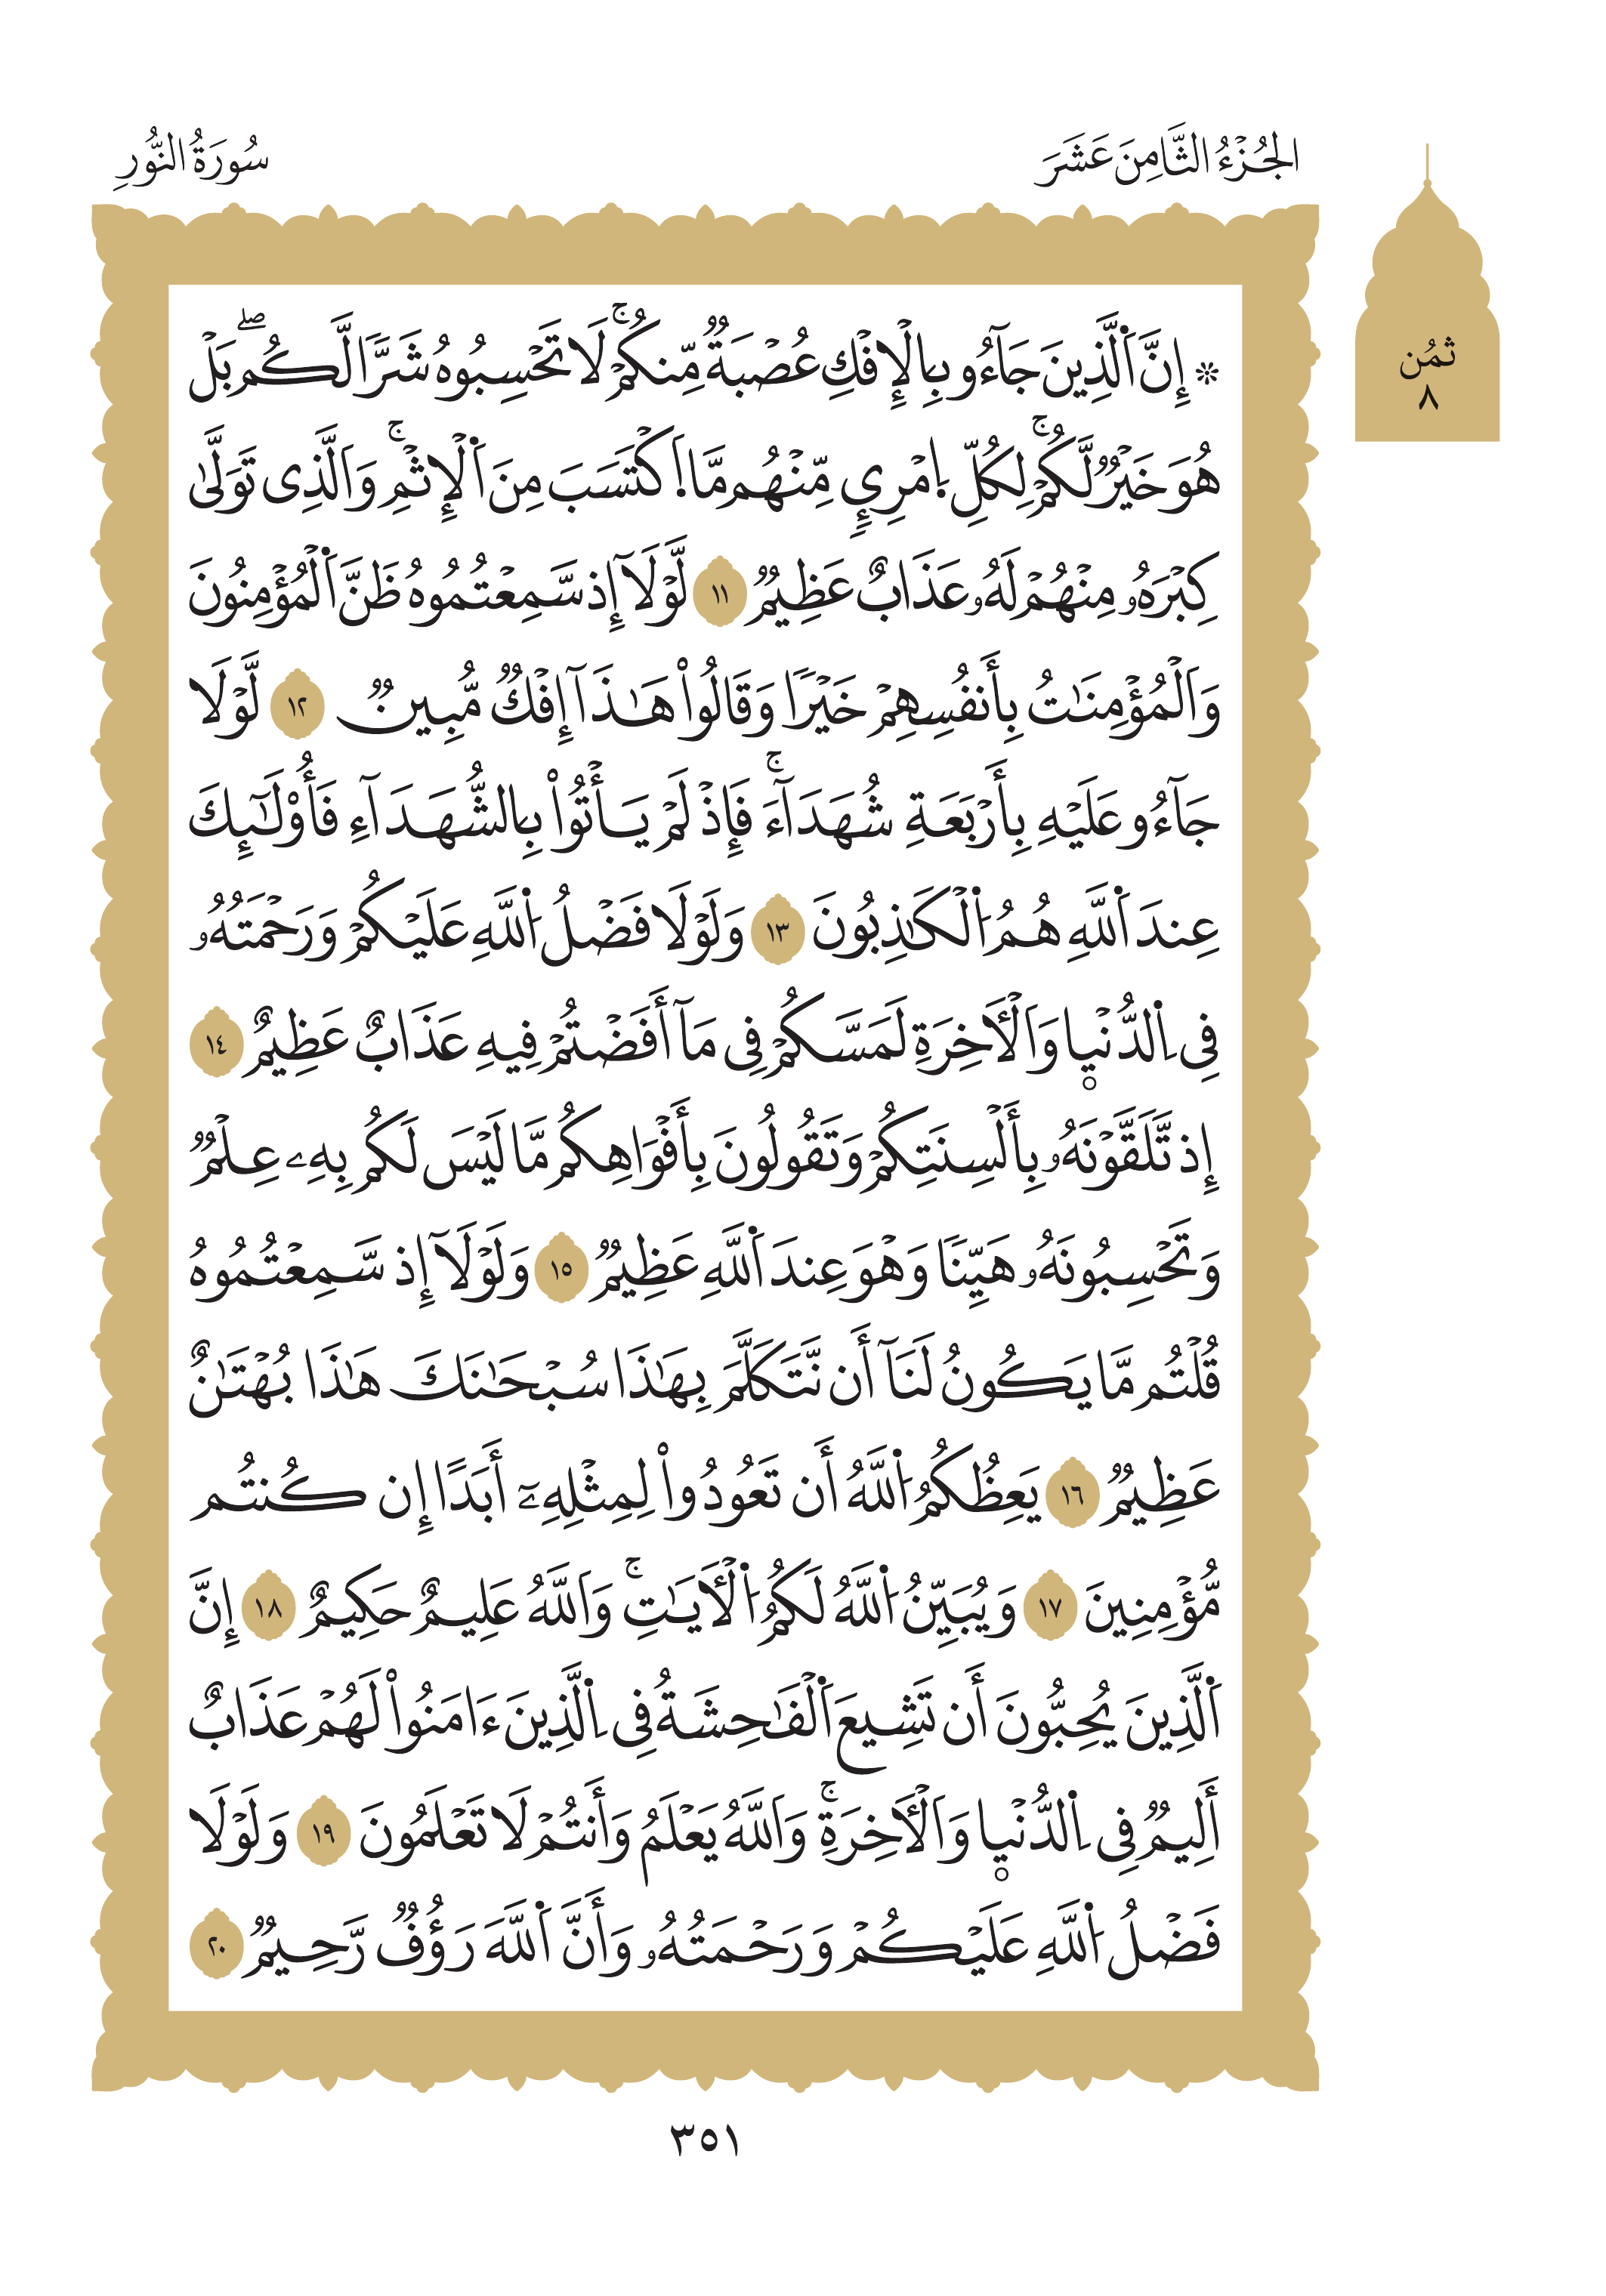 الجُزْءُ الثَّامِنَ عَشَرَ
سُورَةُ النُّورِ
ثمُن
٨
۞ إِنَّ اَ۬لَّذِينَ جَآءُو بِالْإِفْكِ عُصْبَةٞ مِّنكُمْۚ لَا تَحْسِبُوهُ شَرّاٗ لَّكُمۖ بَلْ
هُوَ خَيْرٞ لَّكُمْۚ لِكُلِّ اِ۪مْرِيٕٖ مِّنْهُم مَّا اَ۪كْتَسَبَ مِنَ اَ۬لْإِثْمِۚ وَالَّذِى تَوَلّ۪يٰ
كِبْرَهُۥ مِنْهُمْ لَهُۥ عَذَابٌ عَظِيمٞ ١١ لَّوْلَآ إِذ سَّمِعْتُمُوهُ ظَنَّ اَ۬لْمُؤْمِنُونَ
وَالْمُؤْمِنَٰتُ بِأَنفُسِهِمْ خَيْراٗ وَقَالُواْ هَٰذَآ إِفْكٞ مُّبِينٞ ١٢ لَّوْلَا
جَآءُو عَلَيْهِ بِأَرْبَعَةِ شُهَدَآءَۚ فَإِذْ لَمْ يَأْتُواْ بِالشُّهَدَآءِ فَأُوْلَٰٓئِكَ
عِندَ اَ۬للَّهِ هُمُ اُ۬لْكَٰذِبُونَ ١٣ وَلَوْلَا فَضْلُ اُ۬للَّهِ عَلَيْكُمْ وَرَحْمَتُهُۥ
فِى اِ۬لدُّنْي۪ا وَالْأٓخِرَةِ لَمَسَّكُمْ فِى مَآ أَفَضْتُمْ فِيهِ عَذَابٌ عَظِيمٌ ١٤
إِذ تَّلَقَّوْنَهُۥ بِأَلْسِنَتِكُمْ وَتَقُولُونَ بِأَفْوَاهِكُم مَّا لَيْسَ لَكُم بِهِۦ عِلْمٞ
وَتَحْسِبُونَهُۥ هَيِّناٗ وَهْوَ عِندَ اَ۬للَّهِ عَظِيمٞ ١٥ وَلَوْلَآ إِذ سَّمِعْتُمُوهُ
قُلْتُم مَّا يَكُونُ لَنَآ أَن نَّتَكَلَّمَ بِهَٰذَا سُبْحَٰنَكَ هَٰذَا بُهْتَٰنٌ
عَظِيمٞ ١٦ يَعِظُكُمُ اُ۬للَّهُ أَن تَعُودُواْ لِمِثْلِهِۦٓ أَبَداً إِن كُنتُم
مُّؤْمِنِينَ ١٧ وَيُبَيِّنُ اُ۬للَّهُ لَكُمُ اُ۬لْأٓيَٰتِۚ وَاللَّهُ عَلِيمٌ حَكِيمٌ ١٨ إِنَّ
اَ۬لَّذِينَ يُحِبُّونَ أَن تَشِيعَ اَ۬لْفَٰحِشَةُ فِى اِ۬لَّذِينَ ءَامَنُواْ لَهُمْ عَذَابٌ
أَلِيمٞ فِى اِ۬لدُّنْي۪ا وَالْأٓخِرَةِۚ وَاللَّهُ يَعْلَمُ وَأَنتُمْ لَا تَعْلَمُونَ ١٩ وَلَوْلَا
فَضْلُ اُ۬للَّهِ عَلَيْكُمْ وَرَحْمَتُهُۥ وَأَنَّ اَ۬للَّهَ رَؤُفٞ رَّحِيمٞ ٢٠
٣٥١